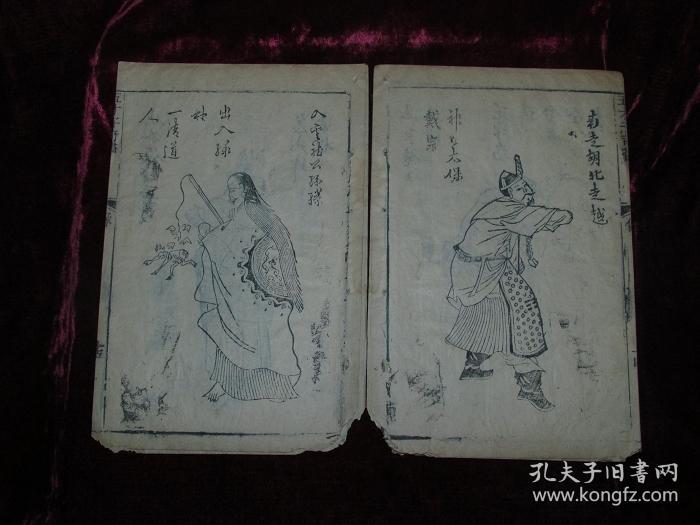 南走胡北走越
神行太保
戴宗
入雲龍公孫勝
出入綠
林
一清道
人
孔夫子旧书网
www.kongfz.com